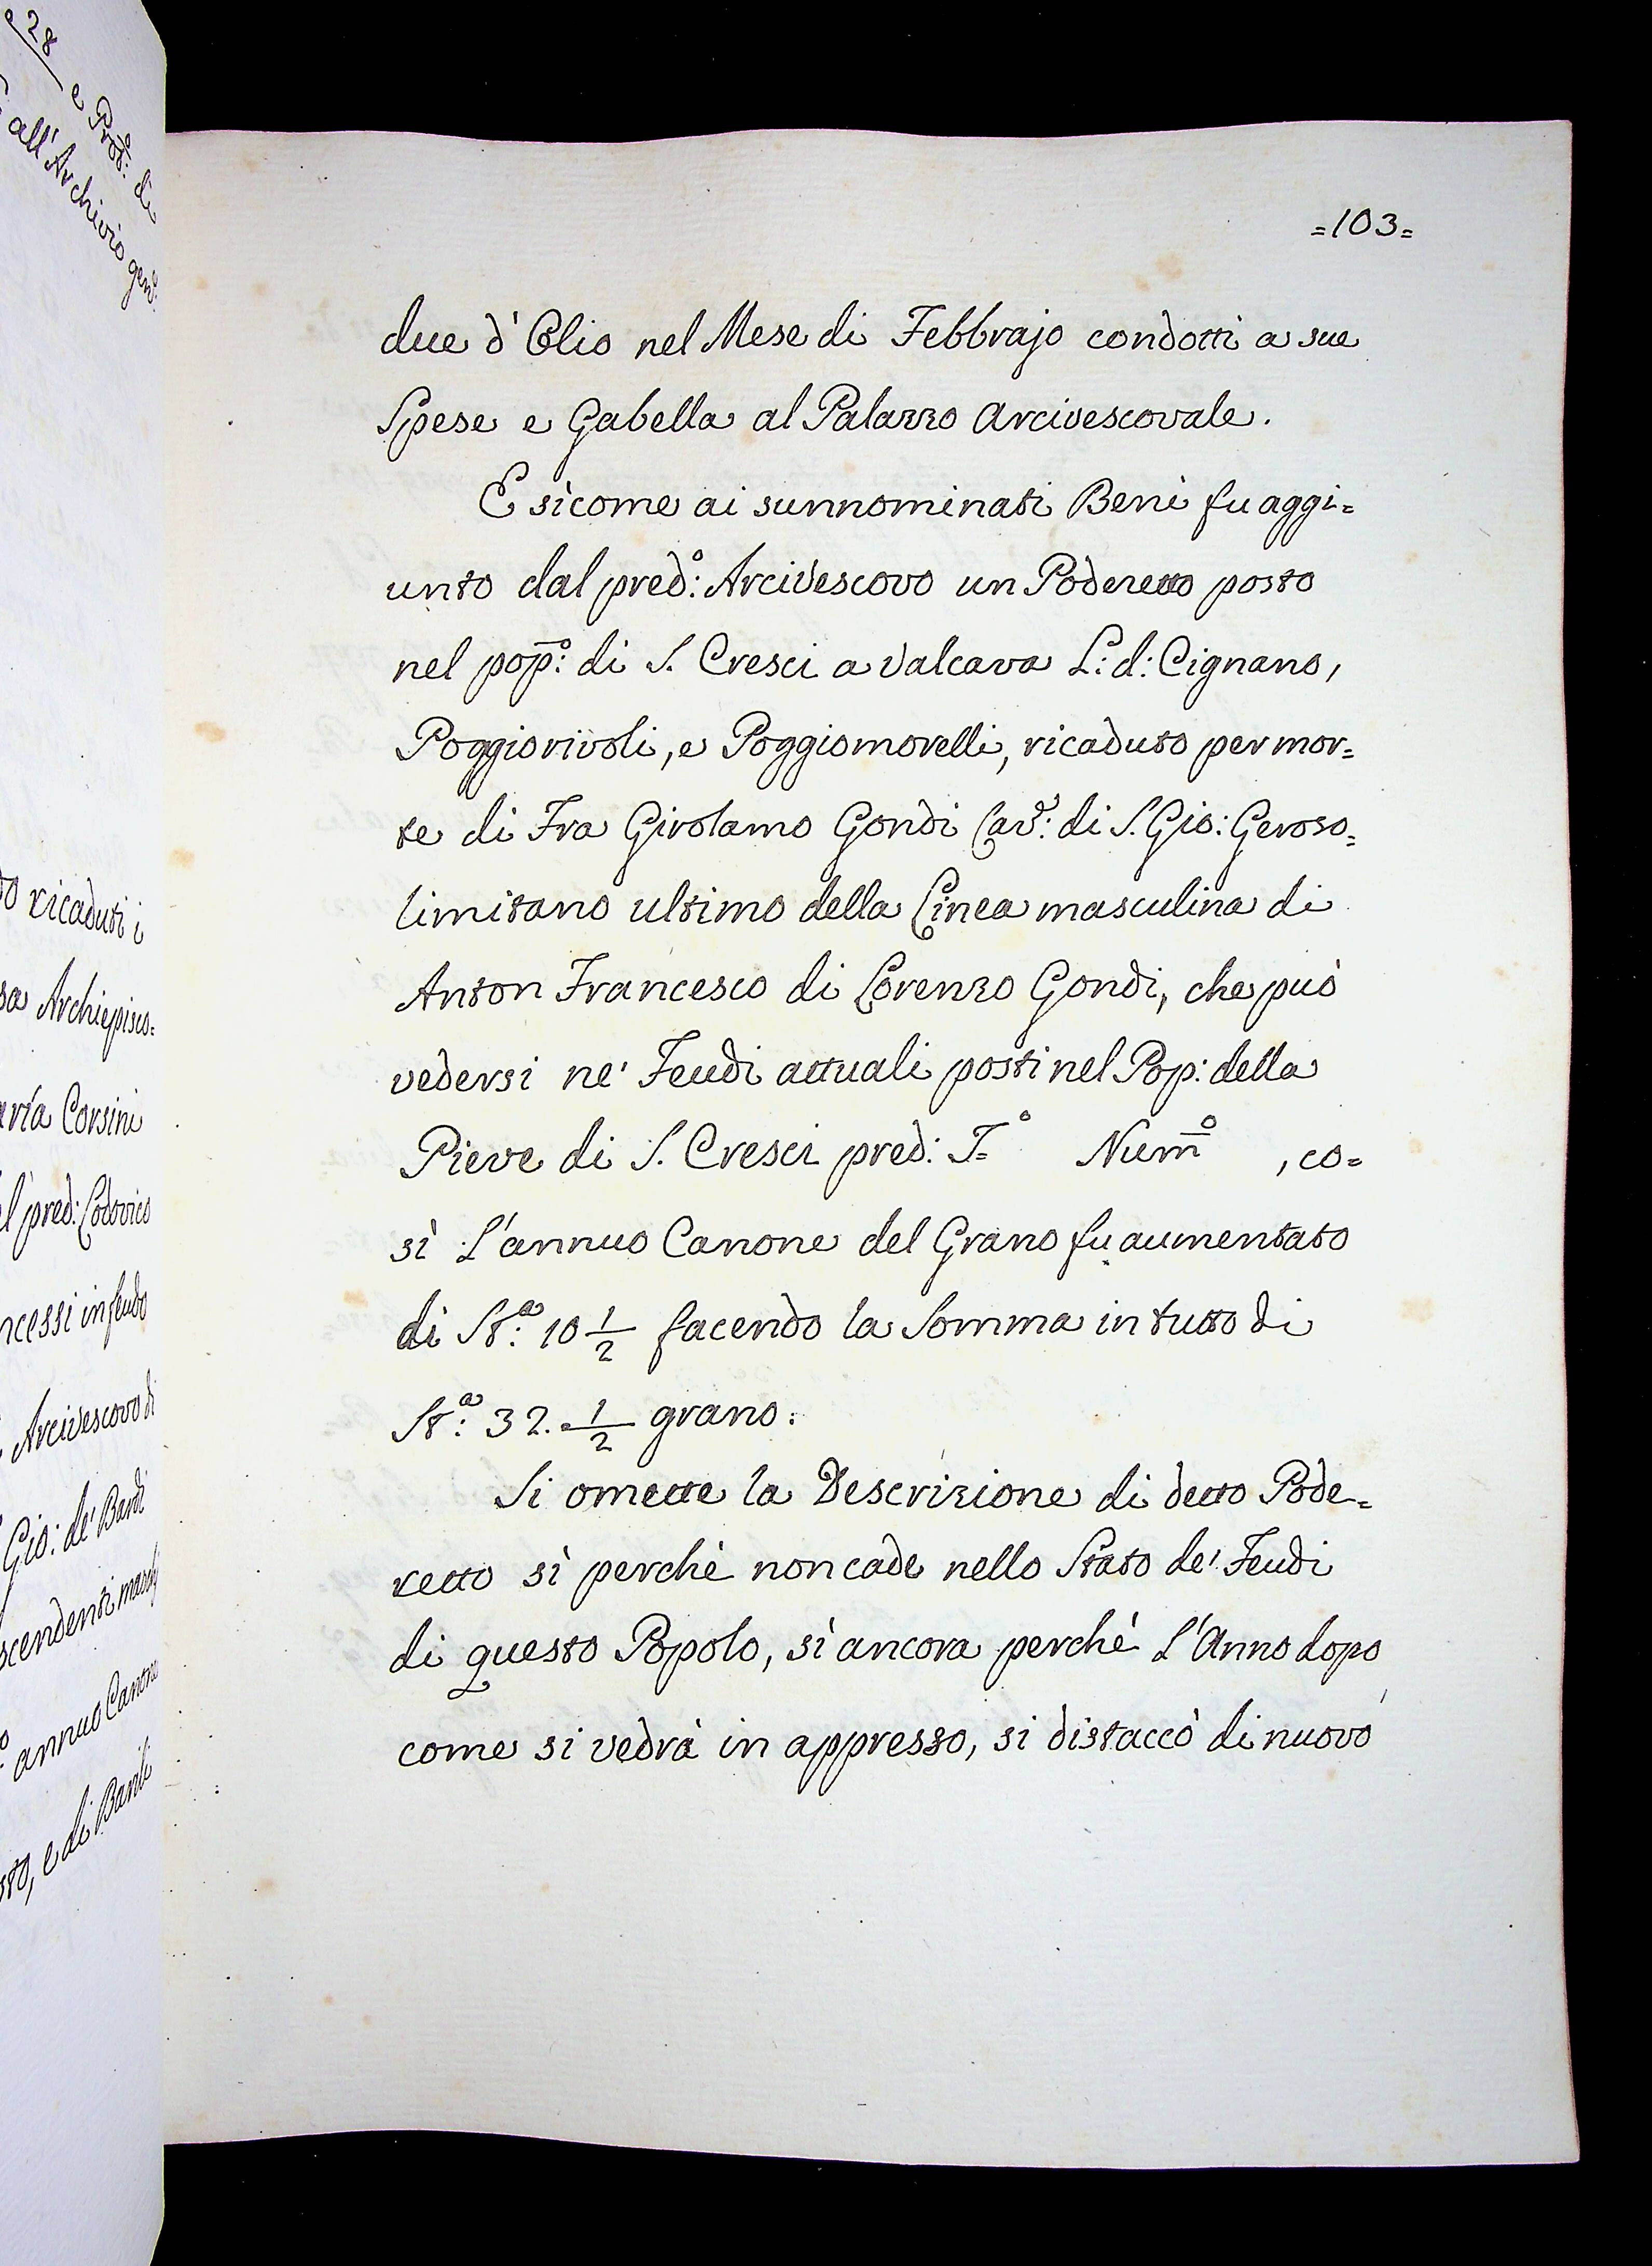 28
e Prot: di
all'Archivio gen
ricaduti i
Archiepisco=
Corsini
pred: Lodovico
in feudo
Arcivescovo di
Gio: de' Bardi
annuo Canone
e di Barili
=103=
due d'Olio nel Mese di Febbrajo condotti a sue
Spese e Gabella al Palazzo Arcivescovale.
E sicome ai sunnominati Beni fu aggi=
unto dal pred:o Arcivescovo un Poderetto posto
nel pop:o di S. Cresci a Valcava L: d: Cignano,
Poggiorivoli, e Poggiomorelli, ricaduto per mor=
te di Fra Girolamo Gondi Cav:e di S. Gio: Geroso=
limitano ultimo della Linea masculina di
Anton Francesco di Lorenzo Gondi, che può
vedersi ne' Feudi attuali posti nel Pop: della
Pieve di S. Cresci pred: T=o Num:o , co=
sì L'annuo Canone del Grano fu aumentato
di St:a 10 1/2 facendo la Somma in tutto di
St:a 32. 1/2 grano.
Si omette la Descrizione di detto Pode=
retto sì perchè non cade nello Stato de' Feudi
di questo Popolo, sì ancora perchè L'Anno dopo,
come si vedrà in appresso, si distaccò di nuovo